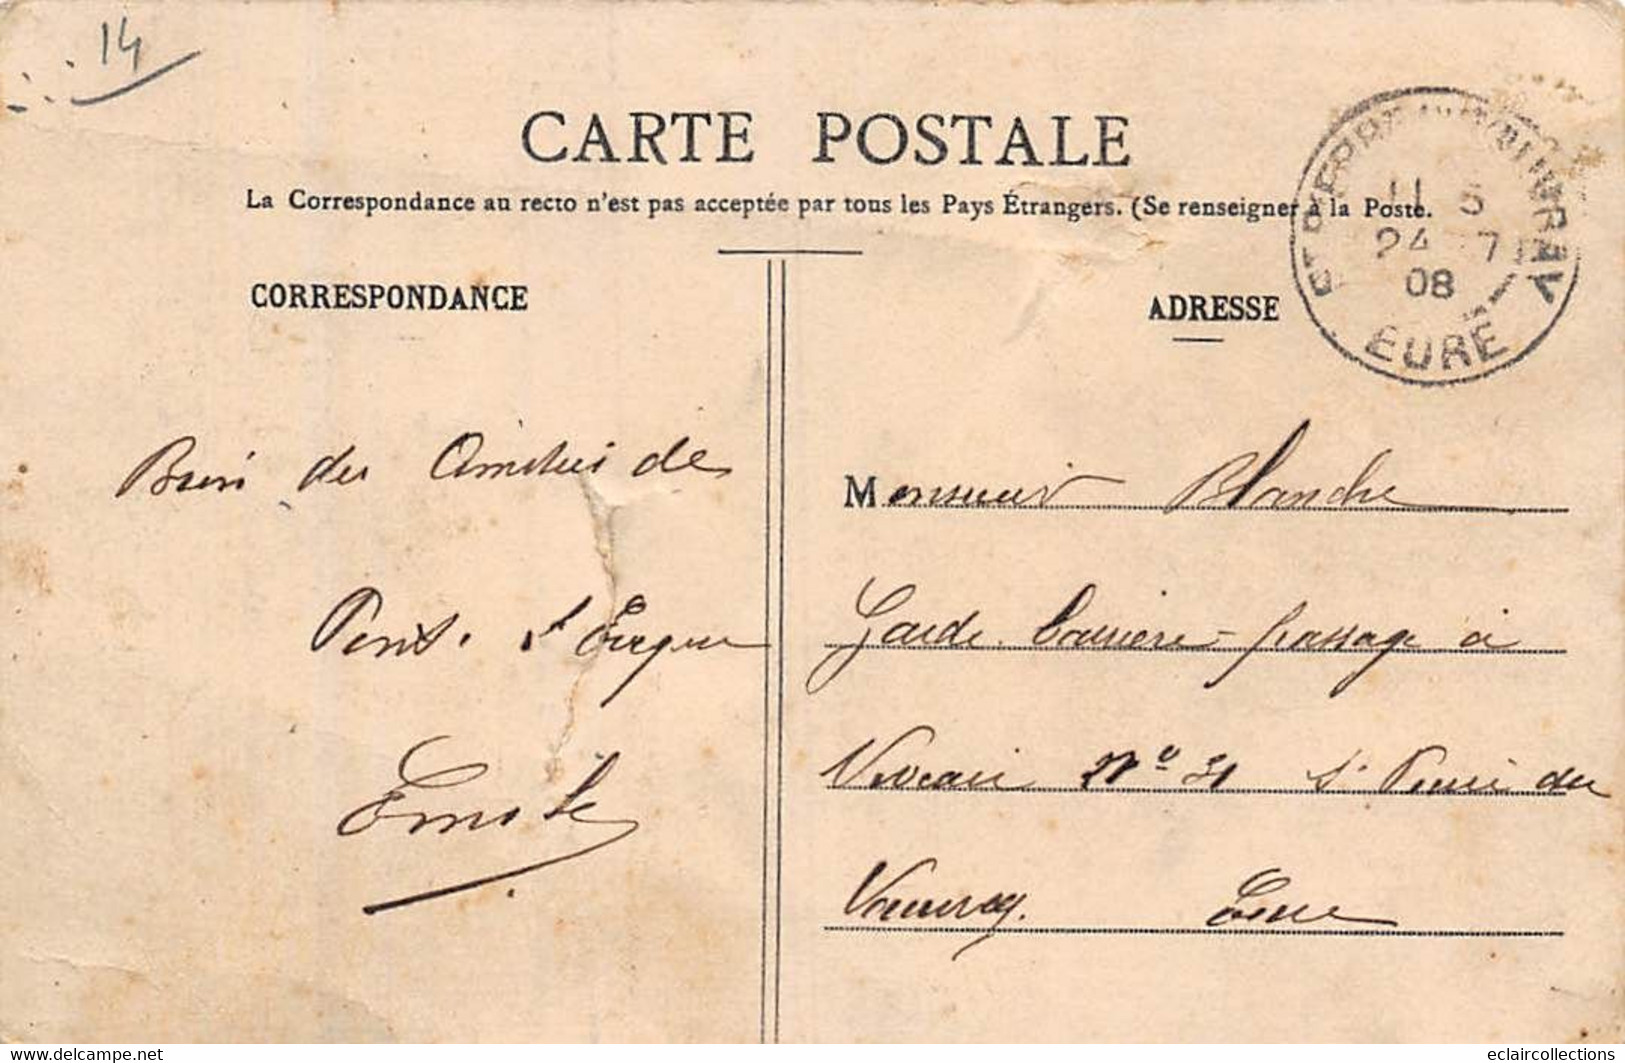 14
CARTE POSTALE
La Correspondance au recto n'est pas acceptée par tous les Pays Étrangers. (Se renseigner à la Poste.
CORRESPONDANCE
ADRESSE
11 5
24 7
08
EURE
Bien des Amitiés de
Pont. l'Evêque
Emile
Monsieur Blanche
Garde barrière passage à
Niveau N° 31 St Pierre du
Vauvray. Eure
eclaircollections
www.delcampe.net